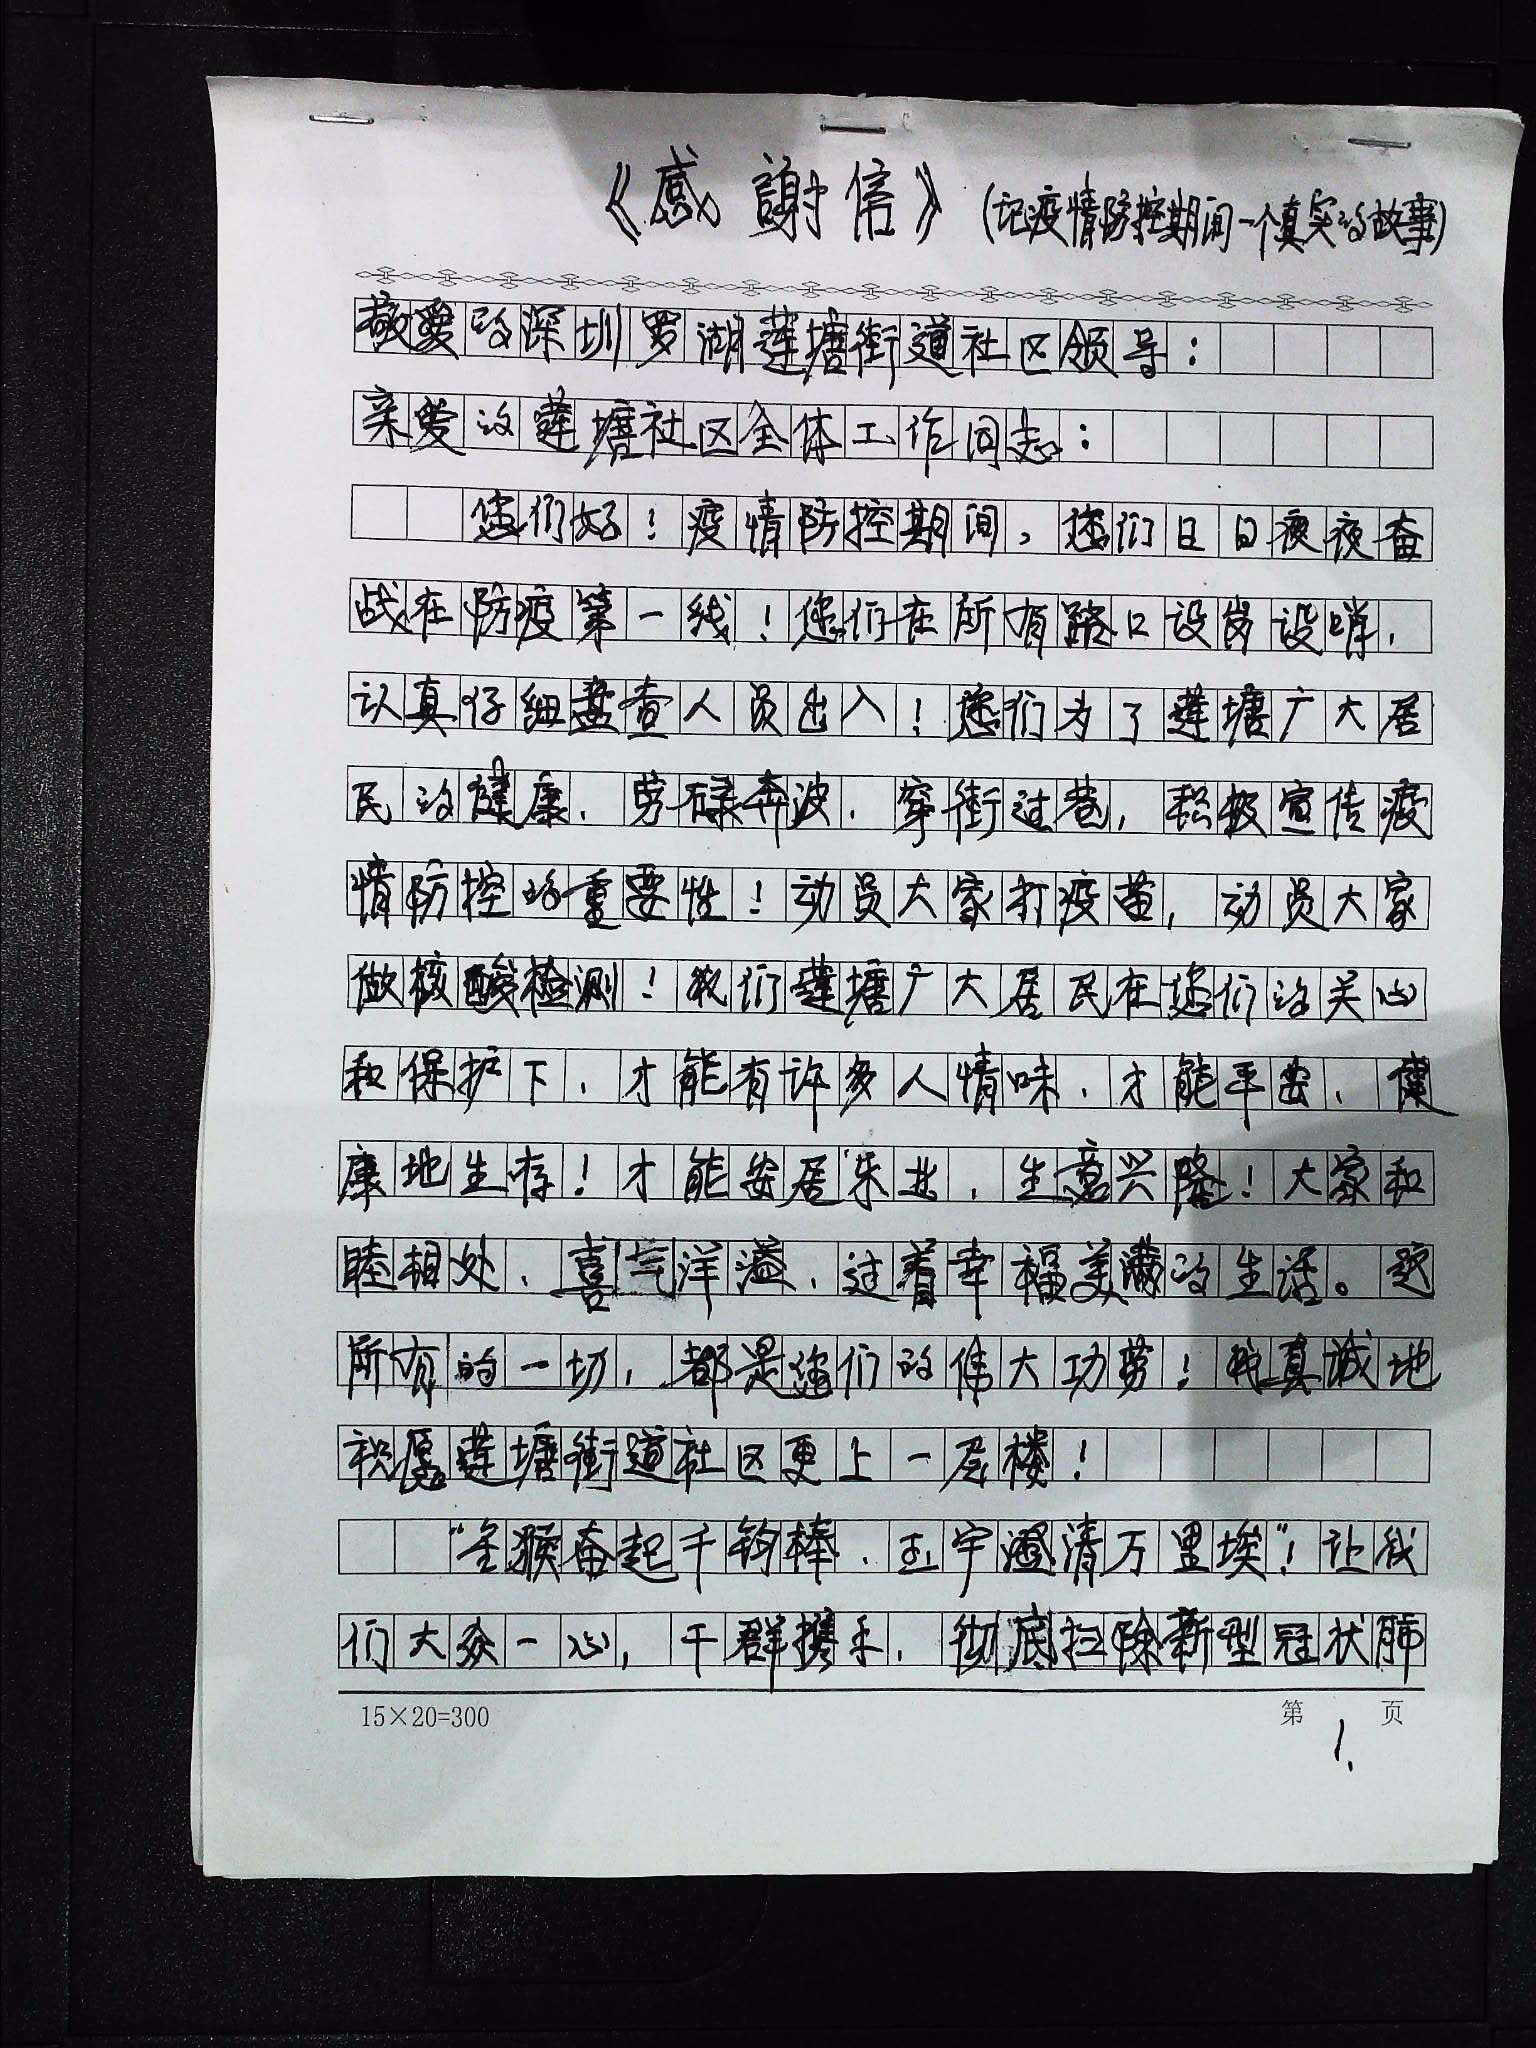 《感謝信》(记疫情防控期间一个真实的故事)
敬爱的深圳罗湖莲塘街道社区领导：
亲爱的莲塘社区全体工作同志：
您们好！疫情防控期间，您们日日夜夜奋
战在防疫第一线！您们在所有路口设岗设哨，
认真仔细盘查人员出入！您们为了莲塘广大居
民的健康，劳碌奔波，穿街过巷，积极宣传疫
情防控的重要性！动员大家打疫苗，动员大家
做核酸检测！我们莲塘广大居民在您们的关心
和保护下，才能有许多人情味，才能平安、健
康地生存！才能安居乐业，生意兴隆！大家和
睦相处，喜气洋溢，过着幸福美满的生活。这
所有的一切，都是您们的伟大功劳！我真诚地
祝愿莲塘街道社区更上一层楼！
“金猴奋起千钧棒，玉宇澄清万里埃”！让我
们大众一心，干群携手，彻底扫除新型冠状肺
15×20=300
第1.页